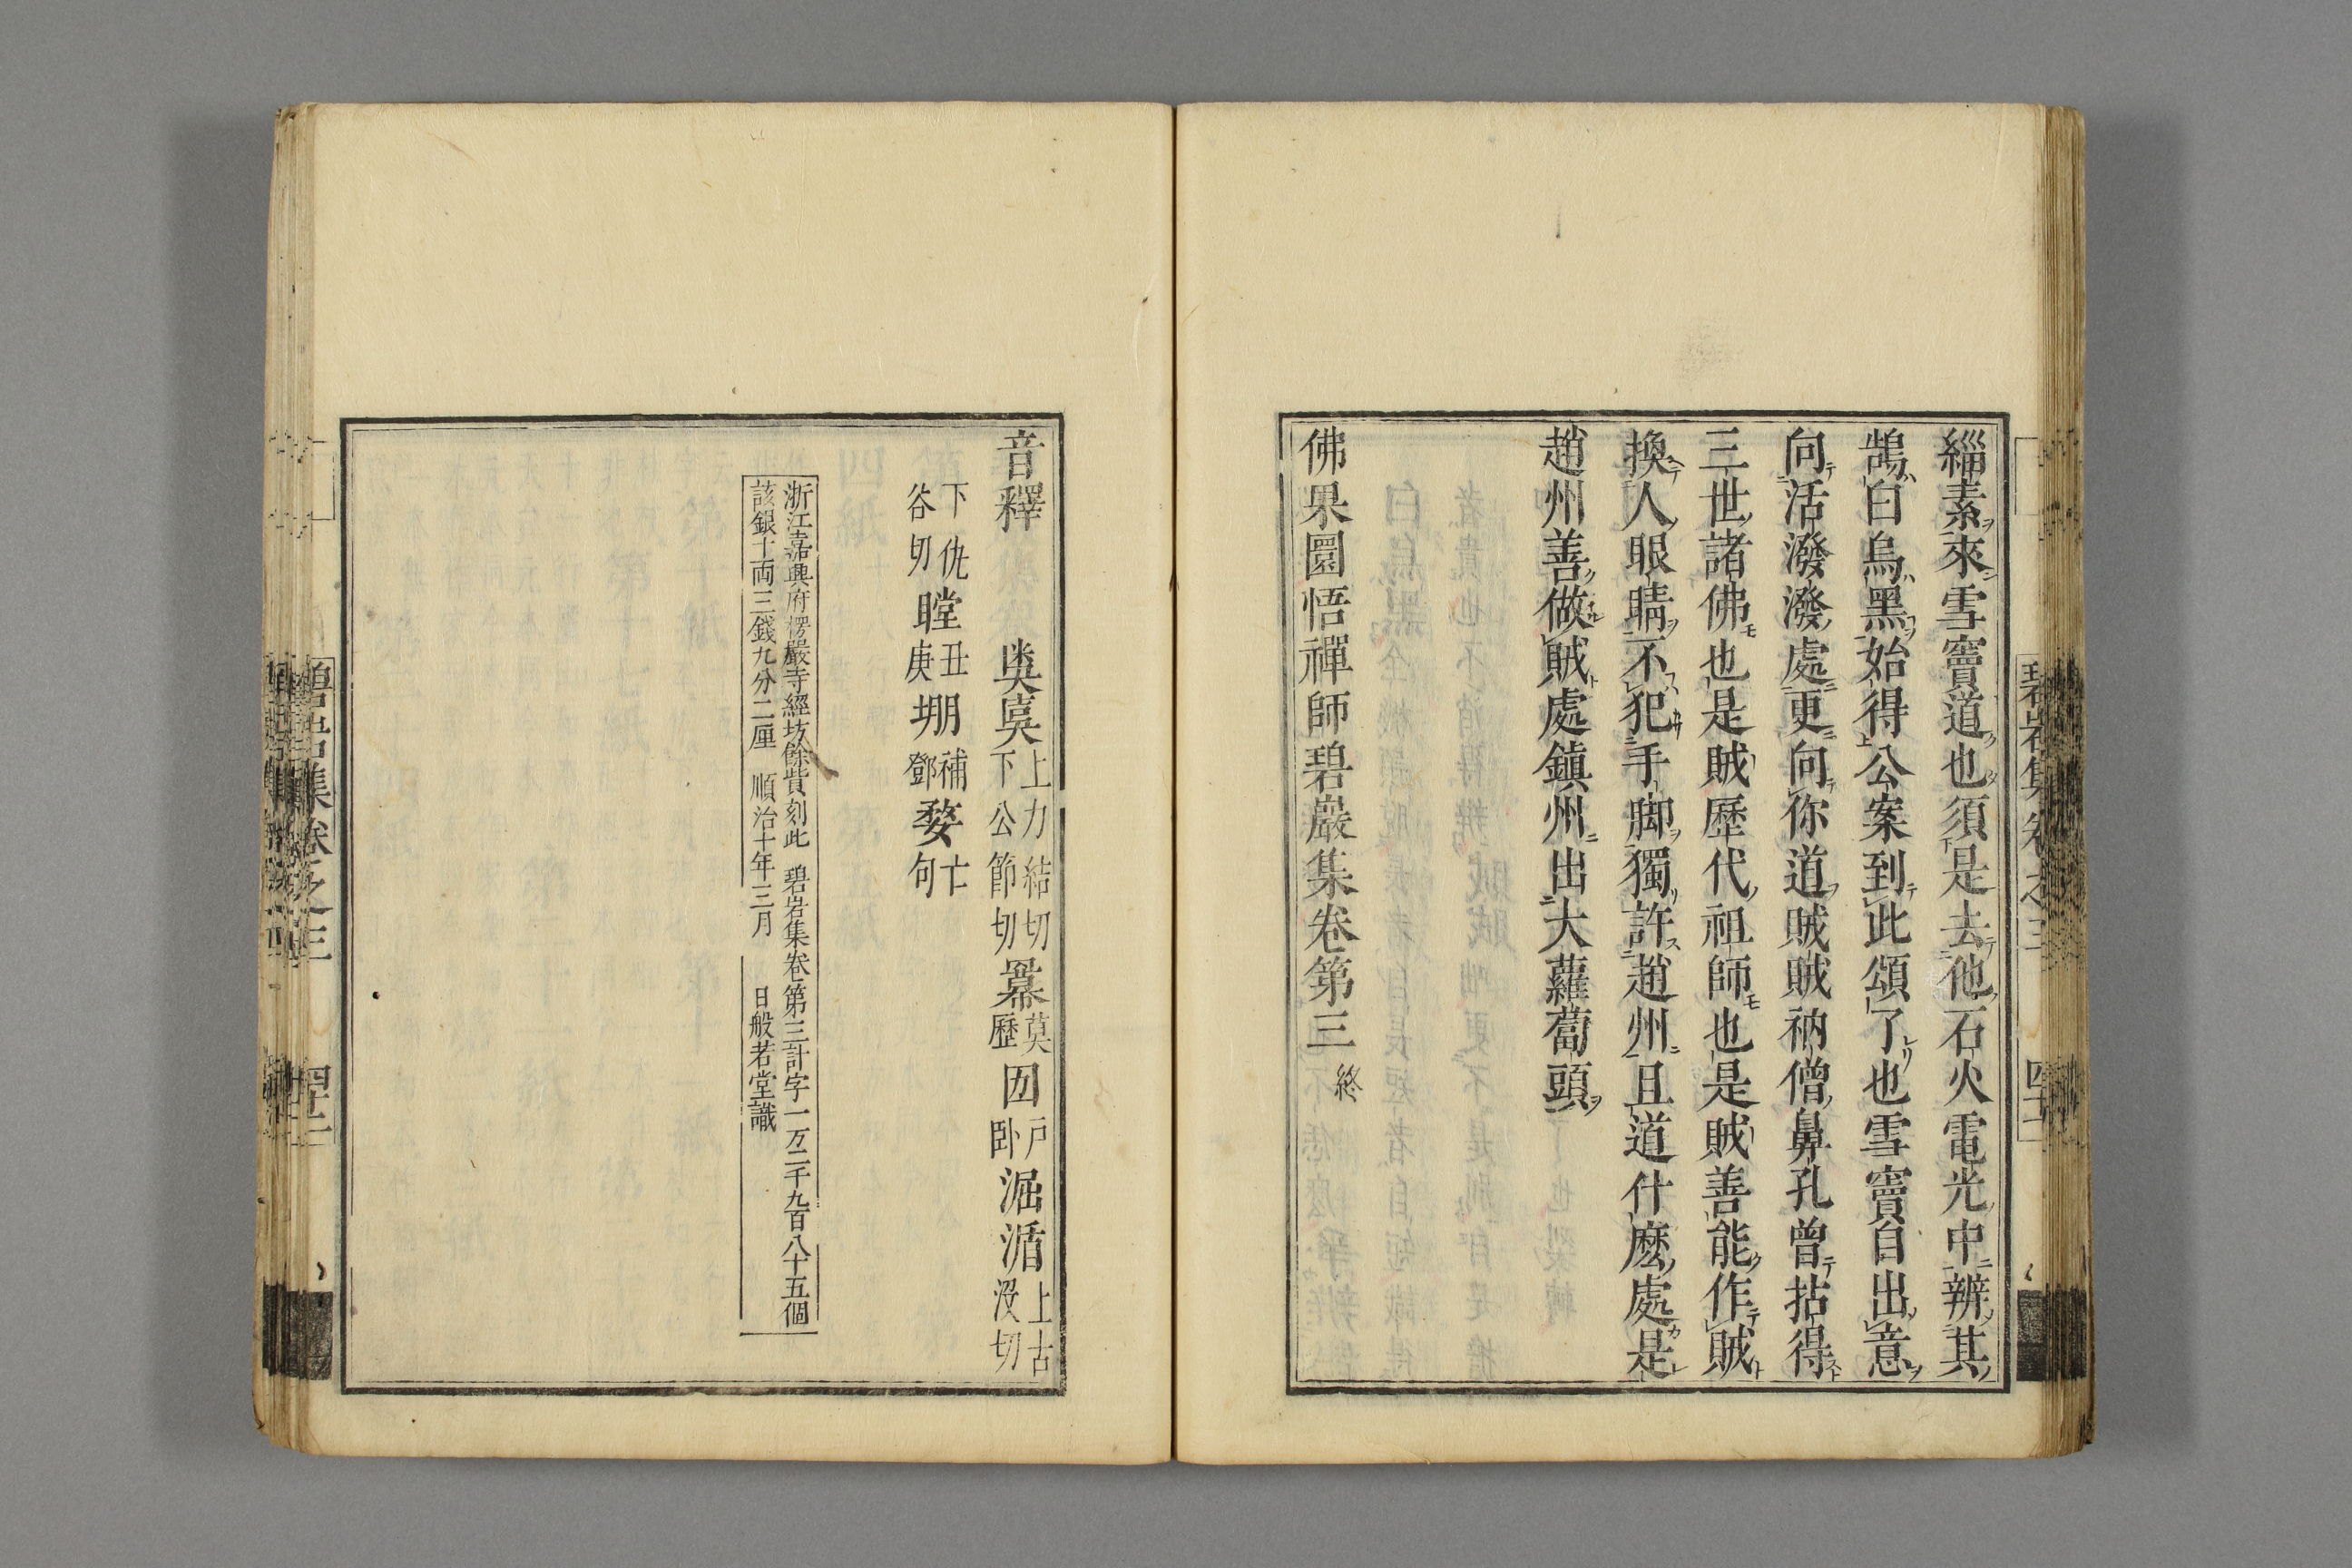 緇素來雪竇道也須是去他石火電光中辨其
鵠白烏黑始得公案到此頌了也雪竇自出意
向活潑潑處更向你道賊賊衲僧鼻孔曾拈得
三世諸佛也是賊歷代祖師也是賊善能作賊
換人眼睛不犯手脚獨許趙州且道什麽處是
趙州善做賊處鎮州出大蘿蔔頭
佛果圜悟禪師碧巖集卷第三 終
音釋
上力結切
下公節切
冪莫歷
囡戶卧
淈㴆上古没切
下仇谷切
瞠丑庚
堋補鄧
婺亡句
浙江嘉興府楞嚴寺經坊餘貲刻此 碧岩集卷第三計字一万二千九百八十五個
該銀十両三錢九分二厘 順治十年三月 日般若堂識